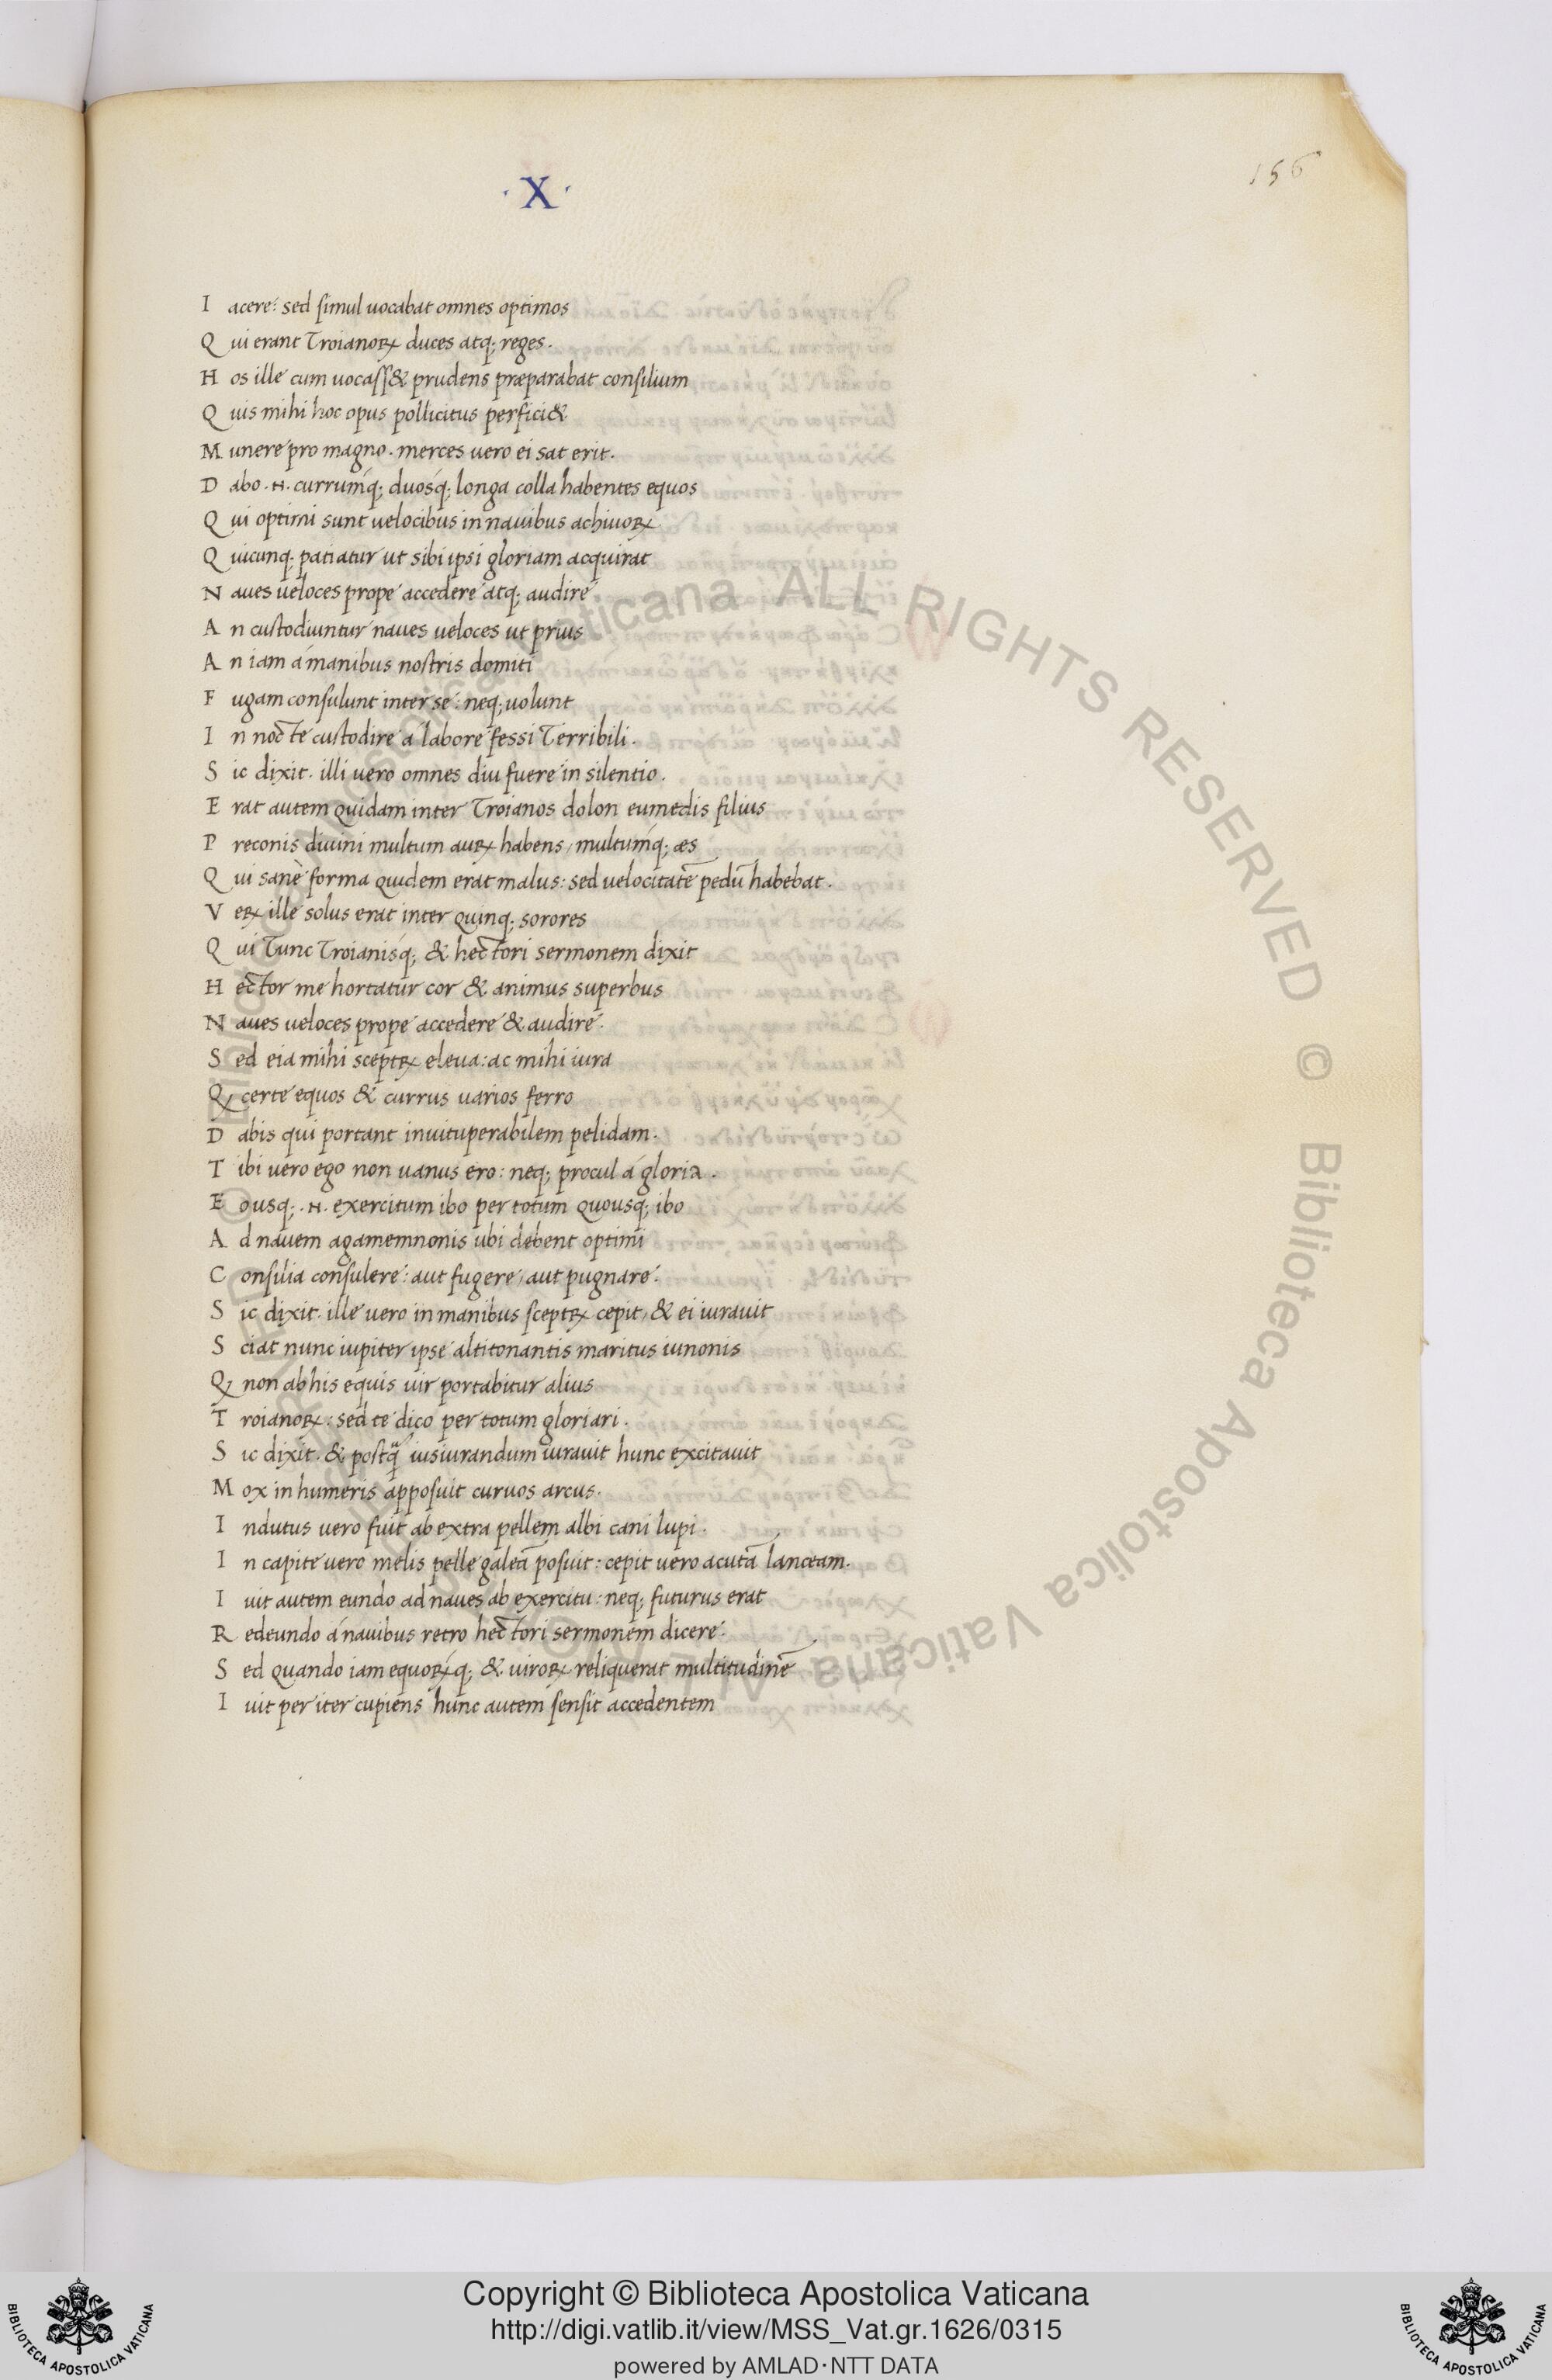 156
·X·
I acere: sed simul uocabat omnes optimos
Q ui erant Troianoꝝ duces atq; reges.
H os ille cum uocass& prudens præparabat consilium
Q uis mihi hoc opus pollicitus perfici&
M unere pro magno. merces uero ei sat erit.
D abo .n. currumq́; duosq́; longa colla habentes equos
Q ui optimi sunt uelocibus in nauibus achiuoꝝ.
Q uicunq; patiatur ut sibi ipsi gloriam acquirat
N aues ueloces prope accedere atq; audire
A n custodiuntur naues ueloces ut prius
A n iam á manibus nostris domiti
F ugam consulunt inter se: neq; uolunt
I n nocte custodire a labore fessi Terribili.
S ic dixit. illi uero omnes diu fuere in silentio.
E rat autem quidam inter Troianos dolon eumedis filius
P reconis diuini multum auꝝ habens, multumq́; æs
Q ui sanè forma quidem erat malus: sed uelocitatē pedū habebat.
V eꝝ ille solus erat inter quinq; sorores
Q ui Tunc Troianisq́; & hectori sermonem dixit
H ector me hortatur cor & animus superbus
N aues ueloces prope accedere & audire.
S ed eia mihi sceptꝝ eleua: ac mihi iura
Ꝙ certe equos & currus uarios ferro
D abis qui portant inuituperabilem pelidam.
T ibi uero ego non uanus ero: neq; procul á gloria.
E ousq; .n. exercitum ibo per totum quousq; ibo
A d nauem agamemnonis ubi debent optimi
C onsilia consulere: aut fugere, aut pugnare.
S ic dixit. ille uero in manibus sceptꝝ cepit, & ei iurauit
S ciat nunc iupiter ipse altitonantis maritus iunonis
Ꝙ non ab his equis uir portabitur alius
T roianoꝝ: sed te dico per totum gloriari.
S ic dixit. & postq̈ iusiurandum iurauit hunc excitauit
M ox in humeris apposuit curuos arcus.
I ndutus uero fuit ab extra pellem albi cani lupi.
I n capite uero melis pelle galeā posuit: cepit uero acutā lanceam.
I uit autem eundo ad naues ab exercitu: neq; futurus erat
R edeundo á nauibus retro hectori sermonem dicere.
S ed quando iam equoꝝq́; & uiroꝝ reliquerat multitudinē
I uit per iter cupiens hunc autem sensit accedentem
Copyright © Biblioteca Apostolica Vaticana
http://digi.vatlib.it/view/MSS_Vat.gr.1626/0315
powered by AMLAD·NTT DATA